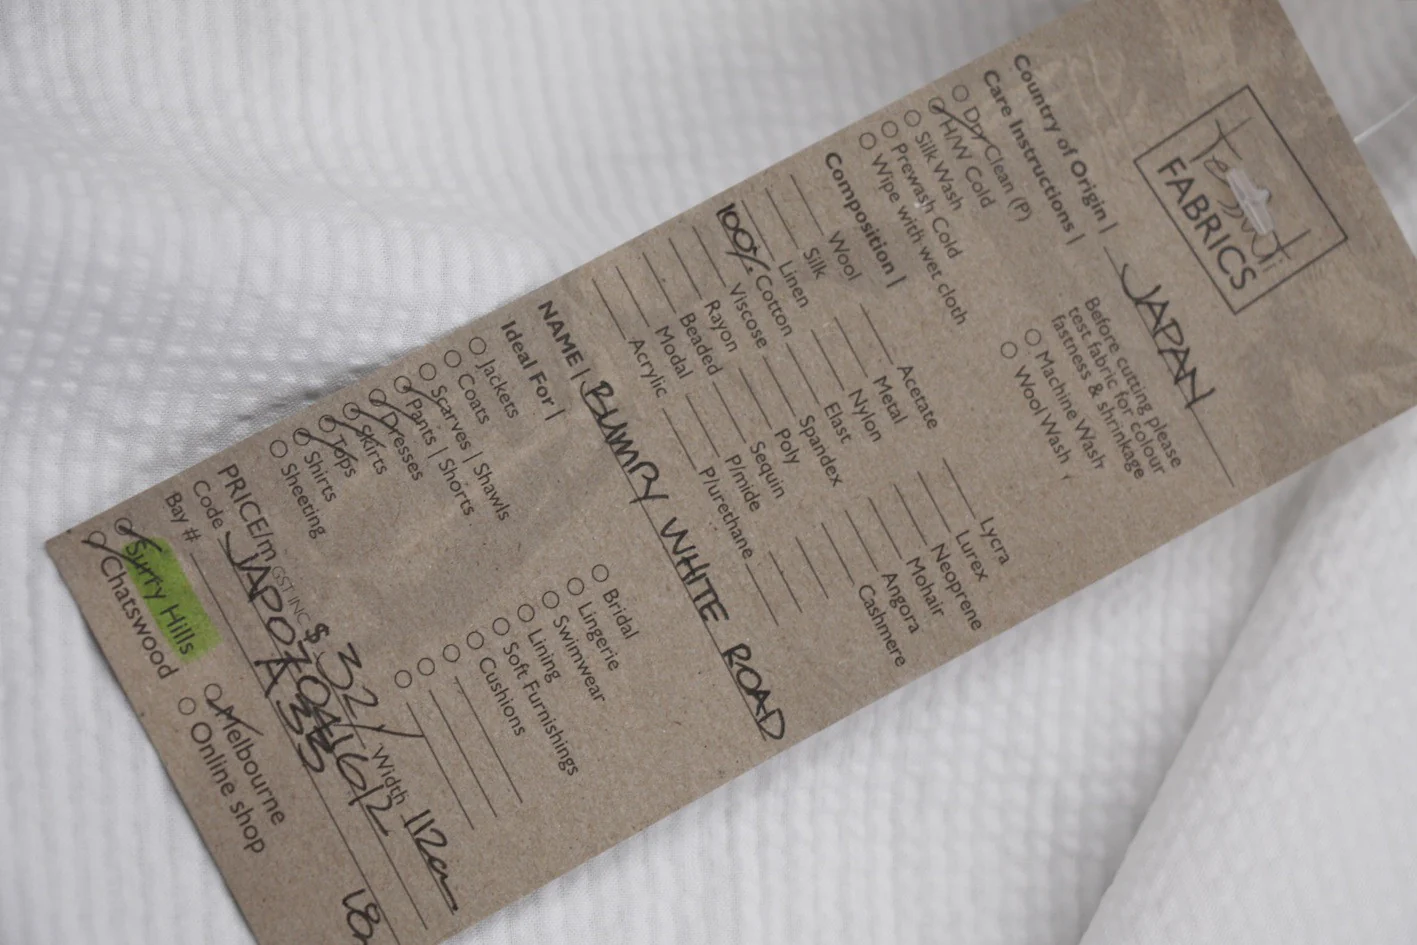 Tessuti
FABRICS
Country of Origin | JAPAN
Care Instructions |
Before cutting please
test fabric for colour
fastness & shrinkage
Dry Clean (P)
H/W Cold
Silk Wash
Prewash Cold
Wipe with wet cloth
Machine Wash
Wool Wash
Composition |
Wool
Silk
Linen
100% Cotton
Viscose
Rayon
Beaded
Modal
Acrylic
Acetate
Metal
Nylon
Elast
Spandex
Poly
Sequin
P/mide
P/urethane
Lycra
Lurex
Neoprene
Mohair
Angora
Cashmere
NAME | BUMPY WHITE ROAD
Ideal For |
Jackets
Coats
Scarves | Shawls
Pants | Shorts
Dresses
Skirts
Tops
Shirts
Sheeting
Bridal
Lingerie
Swimwear
Lining
Soft Furnishings
Cushions
PRICE/m GST INC $ 32/ Width 112cm
Code
Bay # A 330
Surry Hills
Chatswood
Melbourne
Online shop